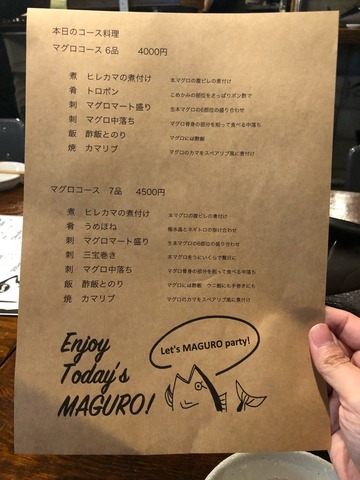 本日のコース料理
マグロコース 6品 4000円
煮 ヒレカマの煮付け 本マグロの腹ビレの煮付け
肴 トロポン こめかみの部位をさっぱりポン酢で
刺 マグロマート盛り 生本マグロの6部位の盛り合わせ
刺 マグロ中落ち マグロ骨身の部分を削って食べる中落ち
飯 酢飯とのり マグロには酢飯
焼 カマリブ マグロのカマをスペアリブ風に煮付け
マグロコース 7品 4500円
煮 ヒレカマの煮付け 本マグロの腹ビレの煮付け
肴 うめほね 梅水晶とネギトロの掛け合わせ
刺 マグロマート盛り 生本マグロの6部位の盛り合わせ
刺 三宝巻き 本マグロをうにいくらで贅沢に
刺 マグロ中落ち マグロ骨身の部分を削って食べる中落ち
飯 酢飯とのり マグロには酢飯 ウニ軸にも手巻きにも
焼 カマリブ マグロのカマをスペアリブ風に煮付け
Let's MAGURO party!
Enjoy
Today's
MAGURO!